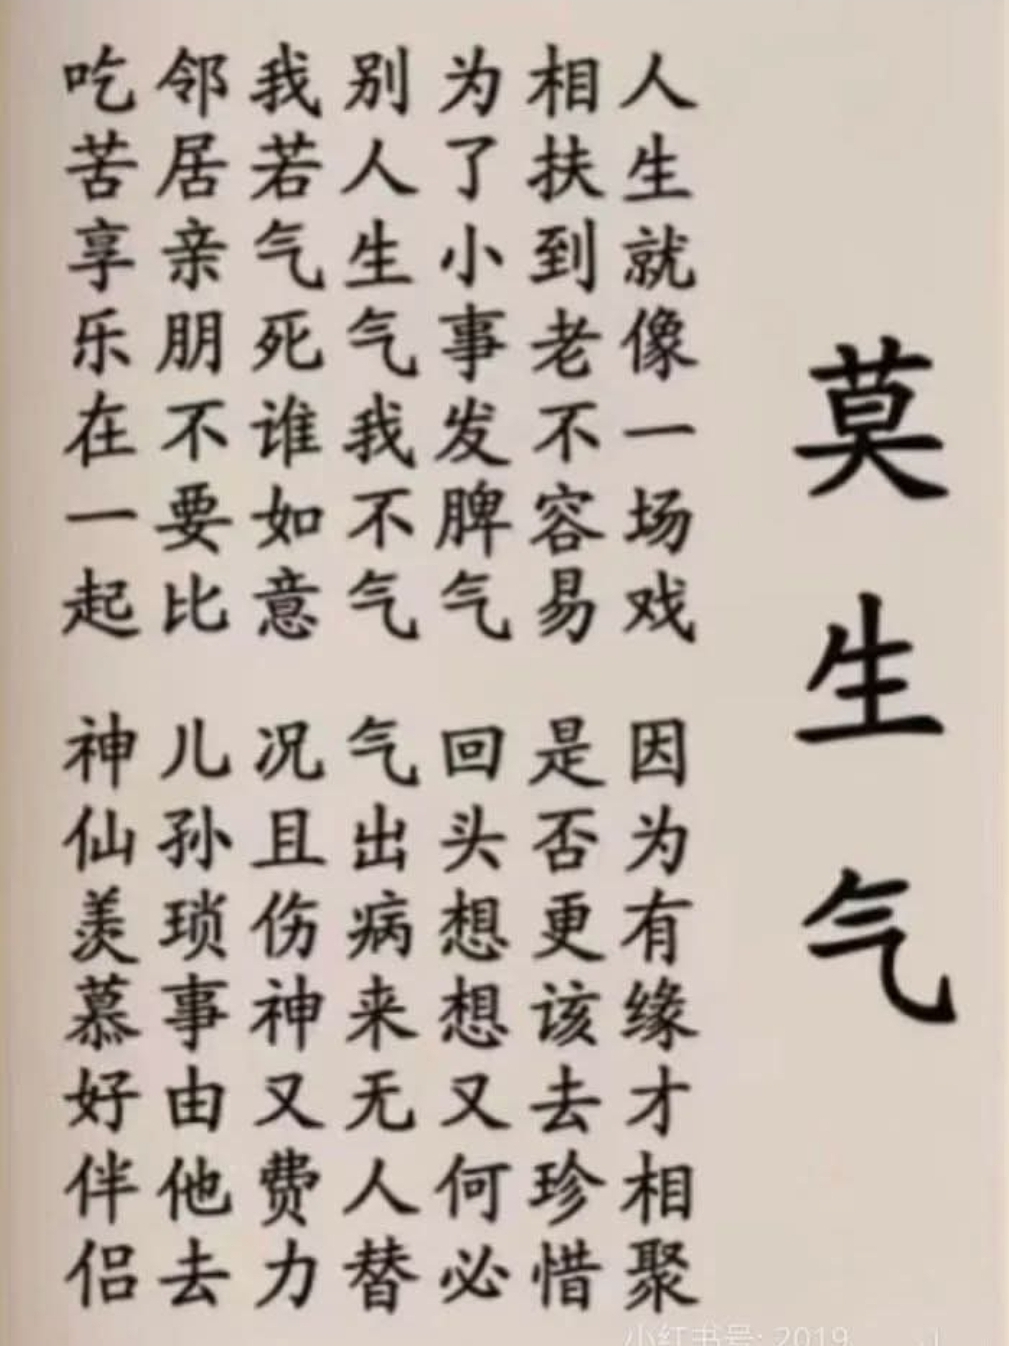 莫生气
人生就像一场戏
因为有缘才相聚
相扶到老不容易
是否更该去珍惜
为了小事发脾气
回头想想又何必
别人生气我不气
气出病来无人替
我若气死谁如意
况且伤神又费力
邻居亲朋不要比
儿孙琐事由他去
吃苦享乐在一起
神仙羡慕好伴侣
小红书号: 2019